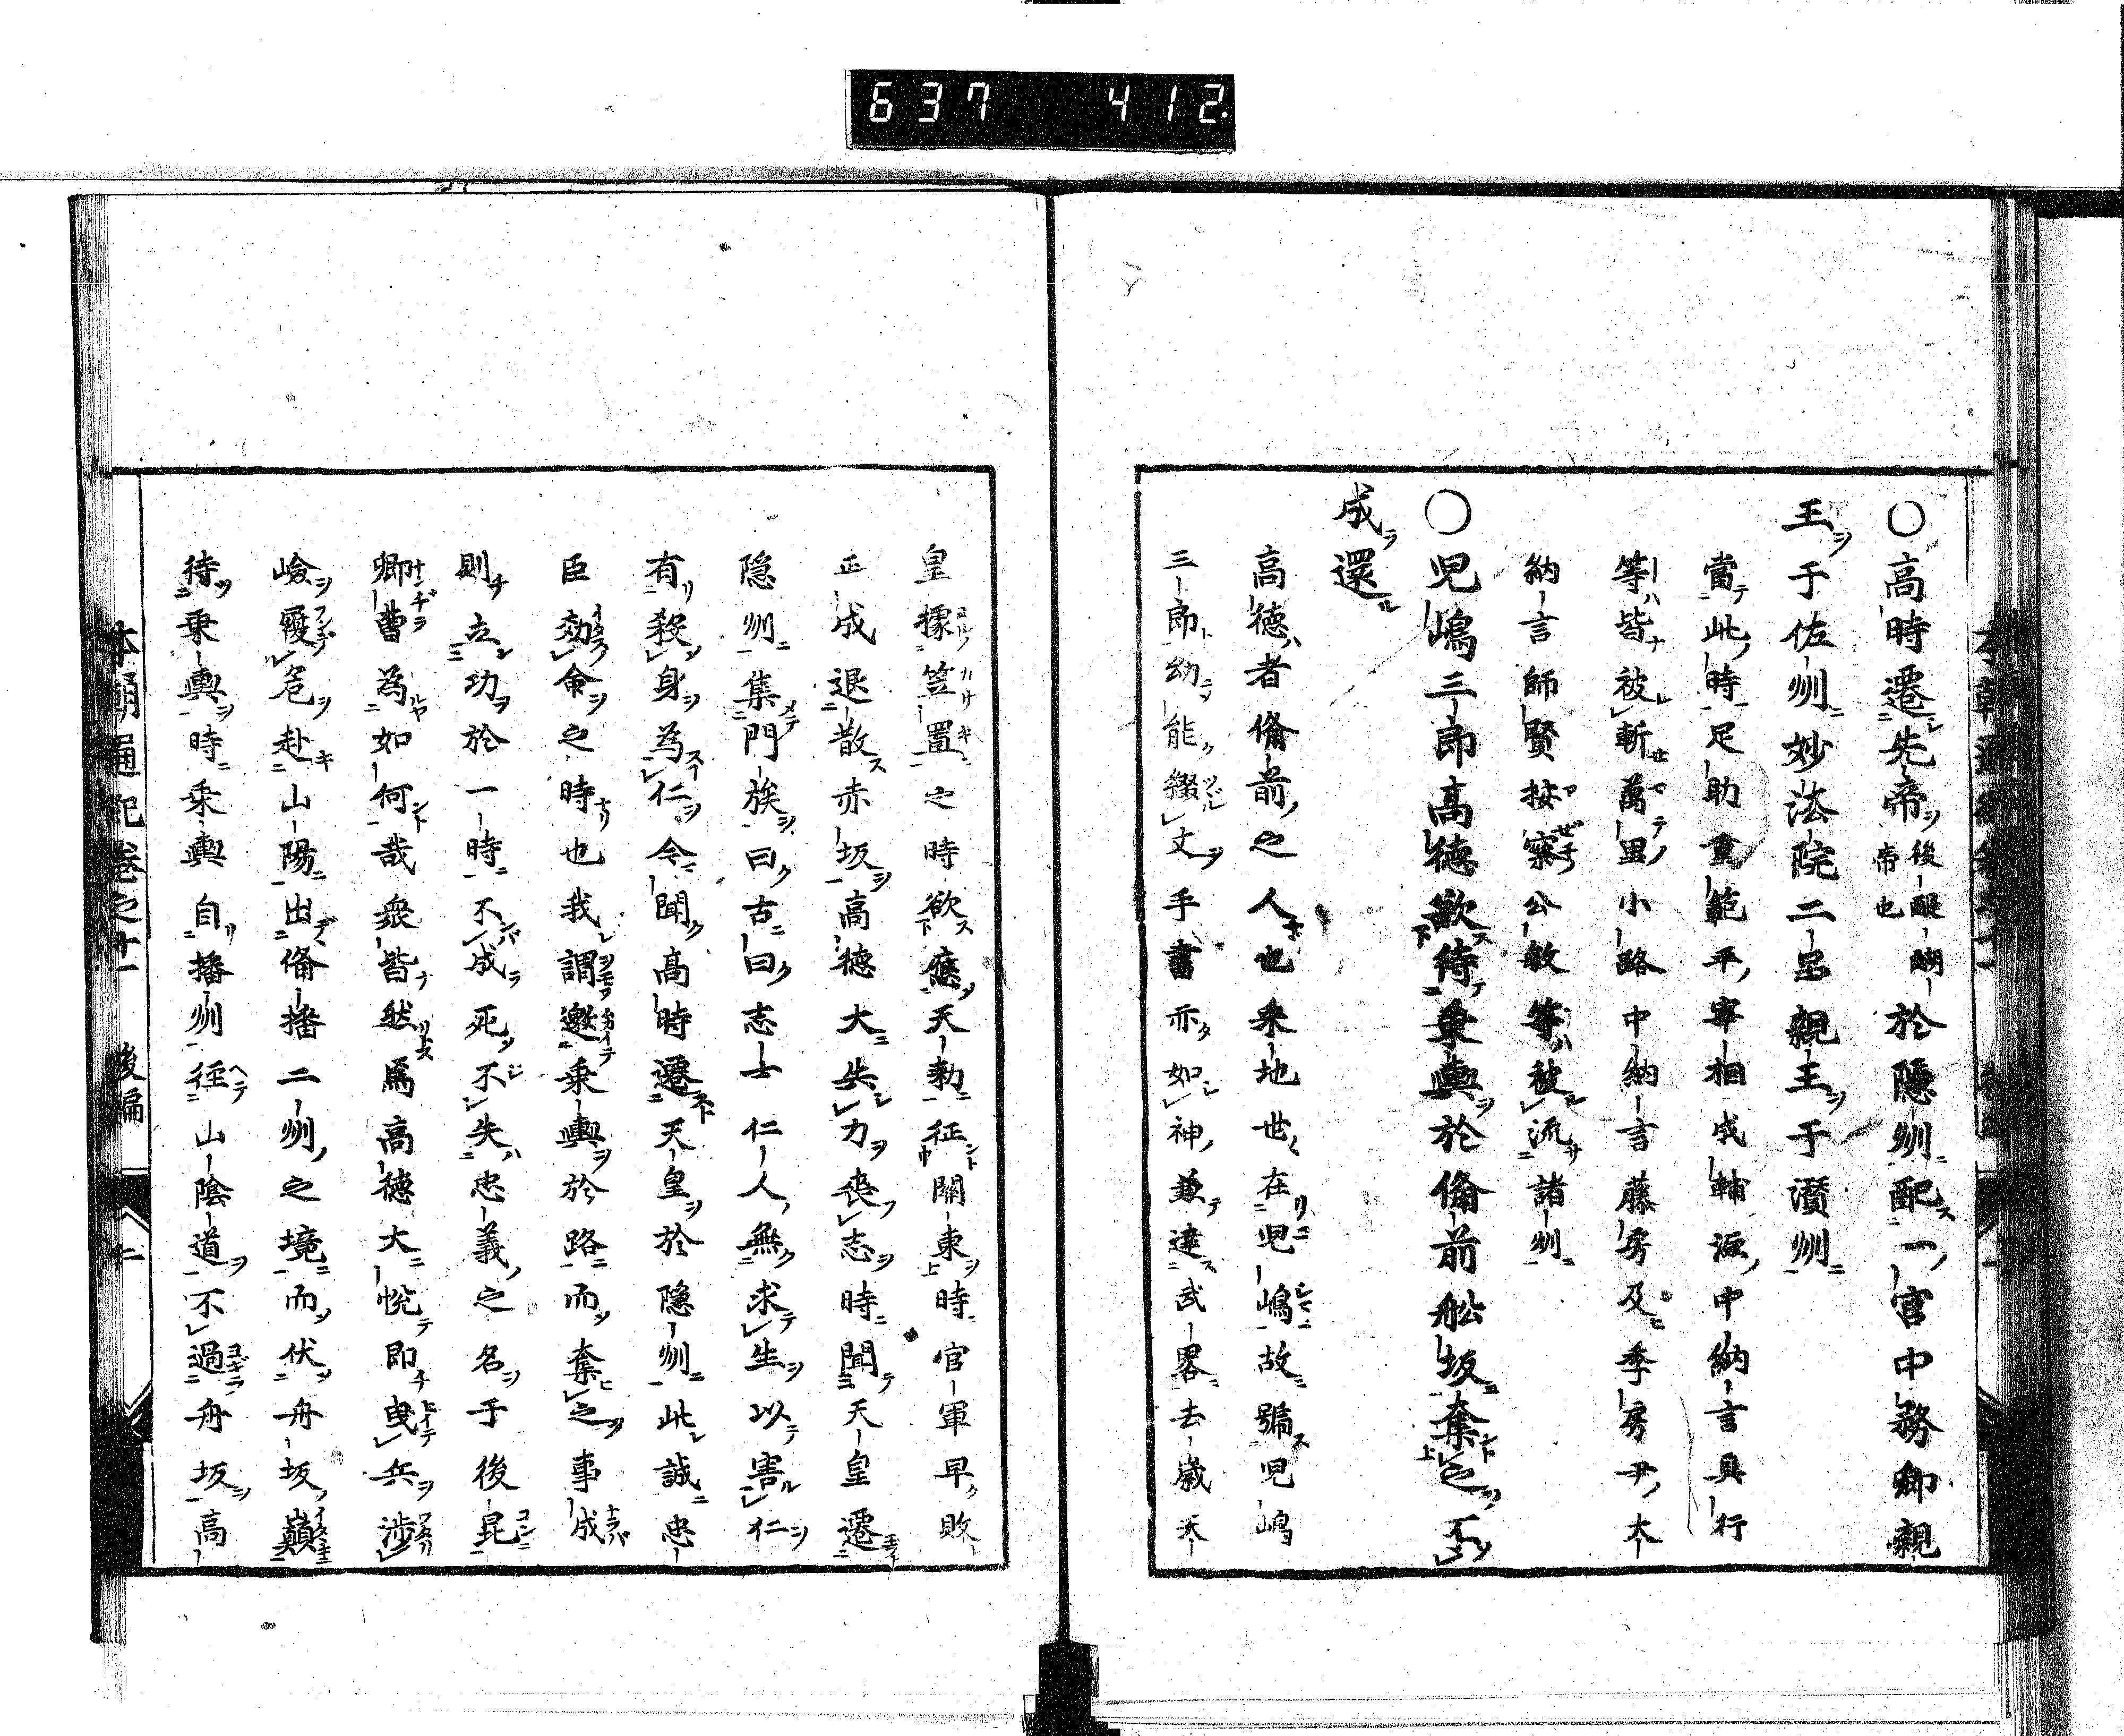 637 412.
○高時遷先帝後醍醐帝也於隠州配一宮中務卿親
王于佐州妙法院二品親王于讃州
當此時足助重範平宰相成輔源中納言具行
等皆被斬萬里小路中納言藤房及季房尹大
納言師賢按察公敏等被流諸州
○児嶋三郎高徳欲待乗輿於俻前舩坂奪之不
成還
高徳者俻前之人也采地世在児嶋故號児嶋
三郎幼能綴文手書亦如神兼達武畧去歳天
皇據笠置之時欲應天勅征關東時官軍早敗
正成退散赤坂高徳大失力喪志時聞天皇遷
隠州集門族曰古曰志士仁人無求生以害仁
有殺身為仁今聞高時遷天皇於隠州此誠忠
臣効命之時也我謂邀乗輿於路而奪之事成
則立功於一時不成死不失忠義之名于後昆
卿曹為如何哉衆皆然焉高徳大悦即曳兵渉
嶮履危赴山陽出俻播二州之境而伏舟坂巓
待乗輿時乗輿自播州徑山陰道不過舟坂高
本朝通紀巻之十一 後編 二